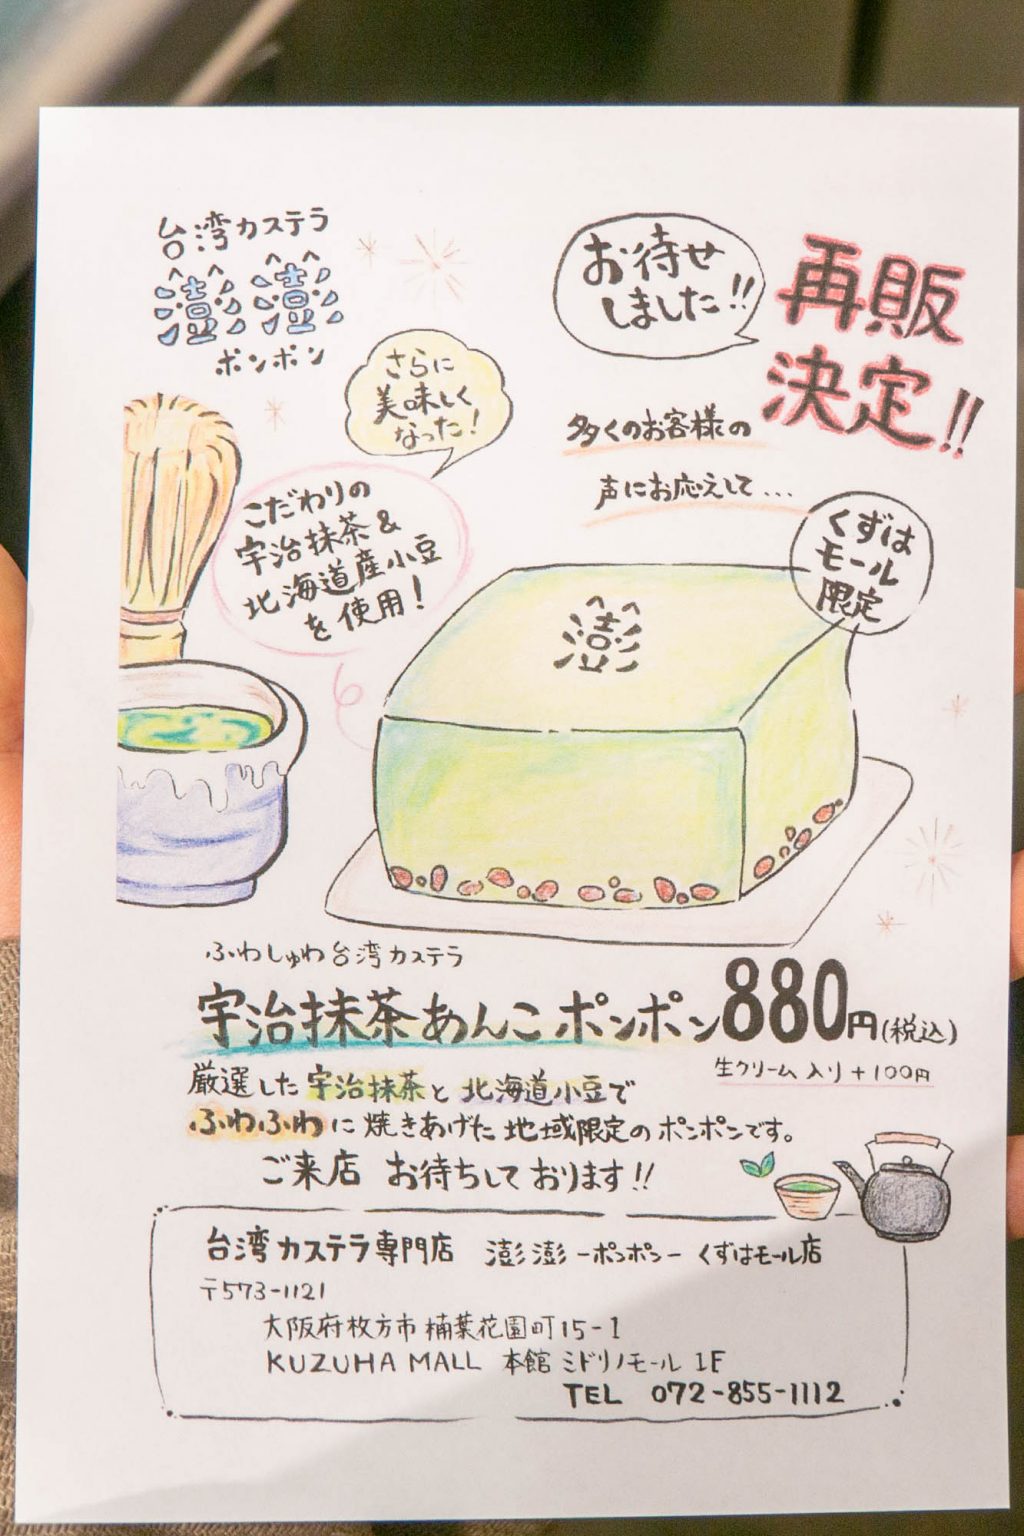 台湾カステラ
澎澎
ポンポン
お待せ
しました!!
再販
決定!!
さらに
美味しく
なった!
多くのお客様の
声にお応えして...
こだわりの
宇治抹茶&
北海道産小豆
を使用!
くずは
モール
限定
澎
ふわしゅわ台湾カステラ
宇治抹茶あんこポンポン880円(税込)
生クリーム入り+100円
厳選した宇治抹茶と北海道小豆で
ふわふわに焼きあげた地域限定のポンポンです。
ご来店 お待ちしております!!
台湾カステラ専門店 澎澎-ポンポン- くずはモール店
〒573-1121
大阪府枚方市楠葉花園町15-1
KUZUHA MALL 本館 ミドリノモール 1F
TEL 072-855-1112